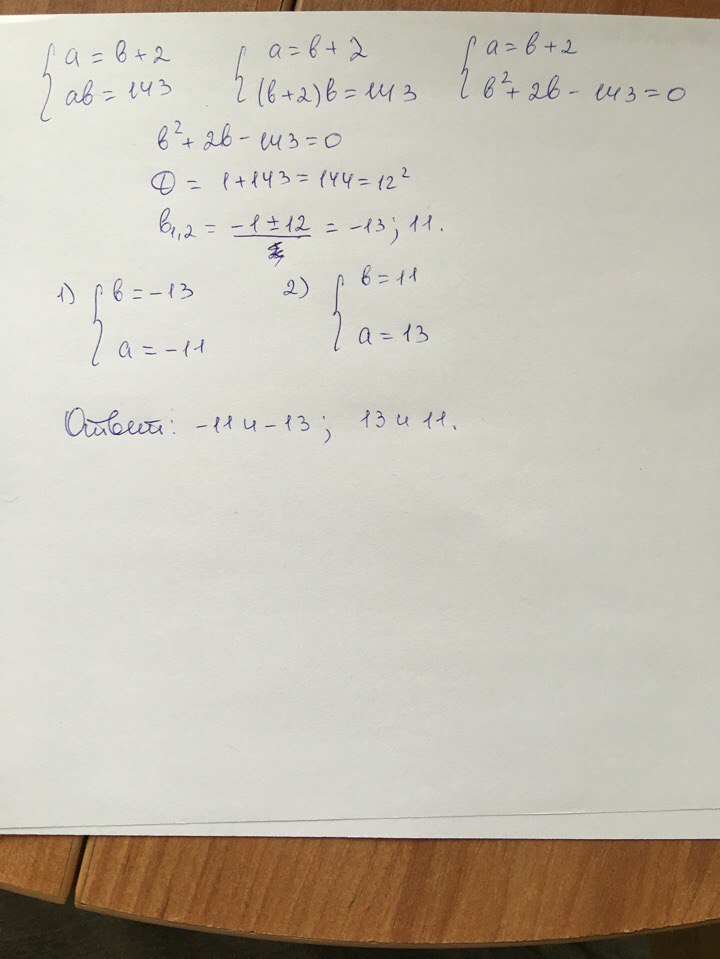 { a = b + 2 { a = b + 2 { a = b + 2
ab = 143 (b+2)b = 143 b² + 2b - 143 = 0
b² + 2b - 143 = 0
D = 1 + 143 = 144 = 12²
b₁,₂ = -1 ± 12 = -13; 11.
1) { b = -13 2) { b = 11
a = -11 a = 13
Ответ: -11 и -13; 13 и 11.